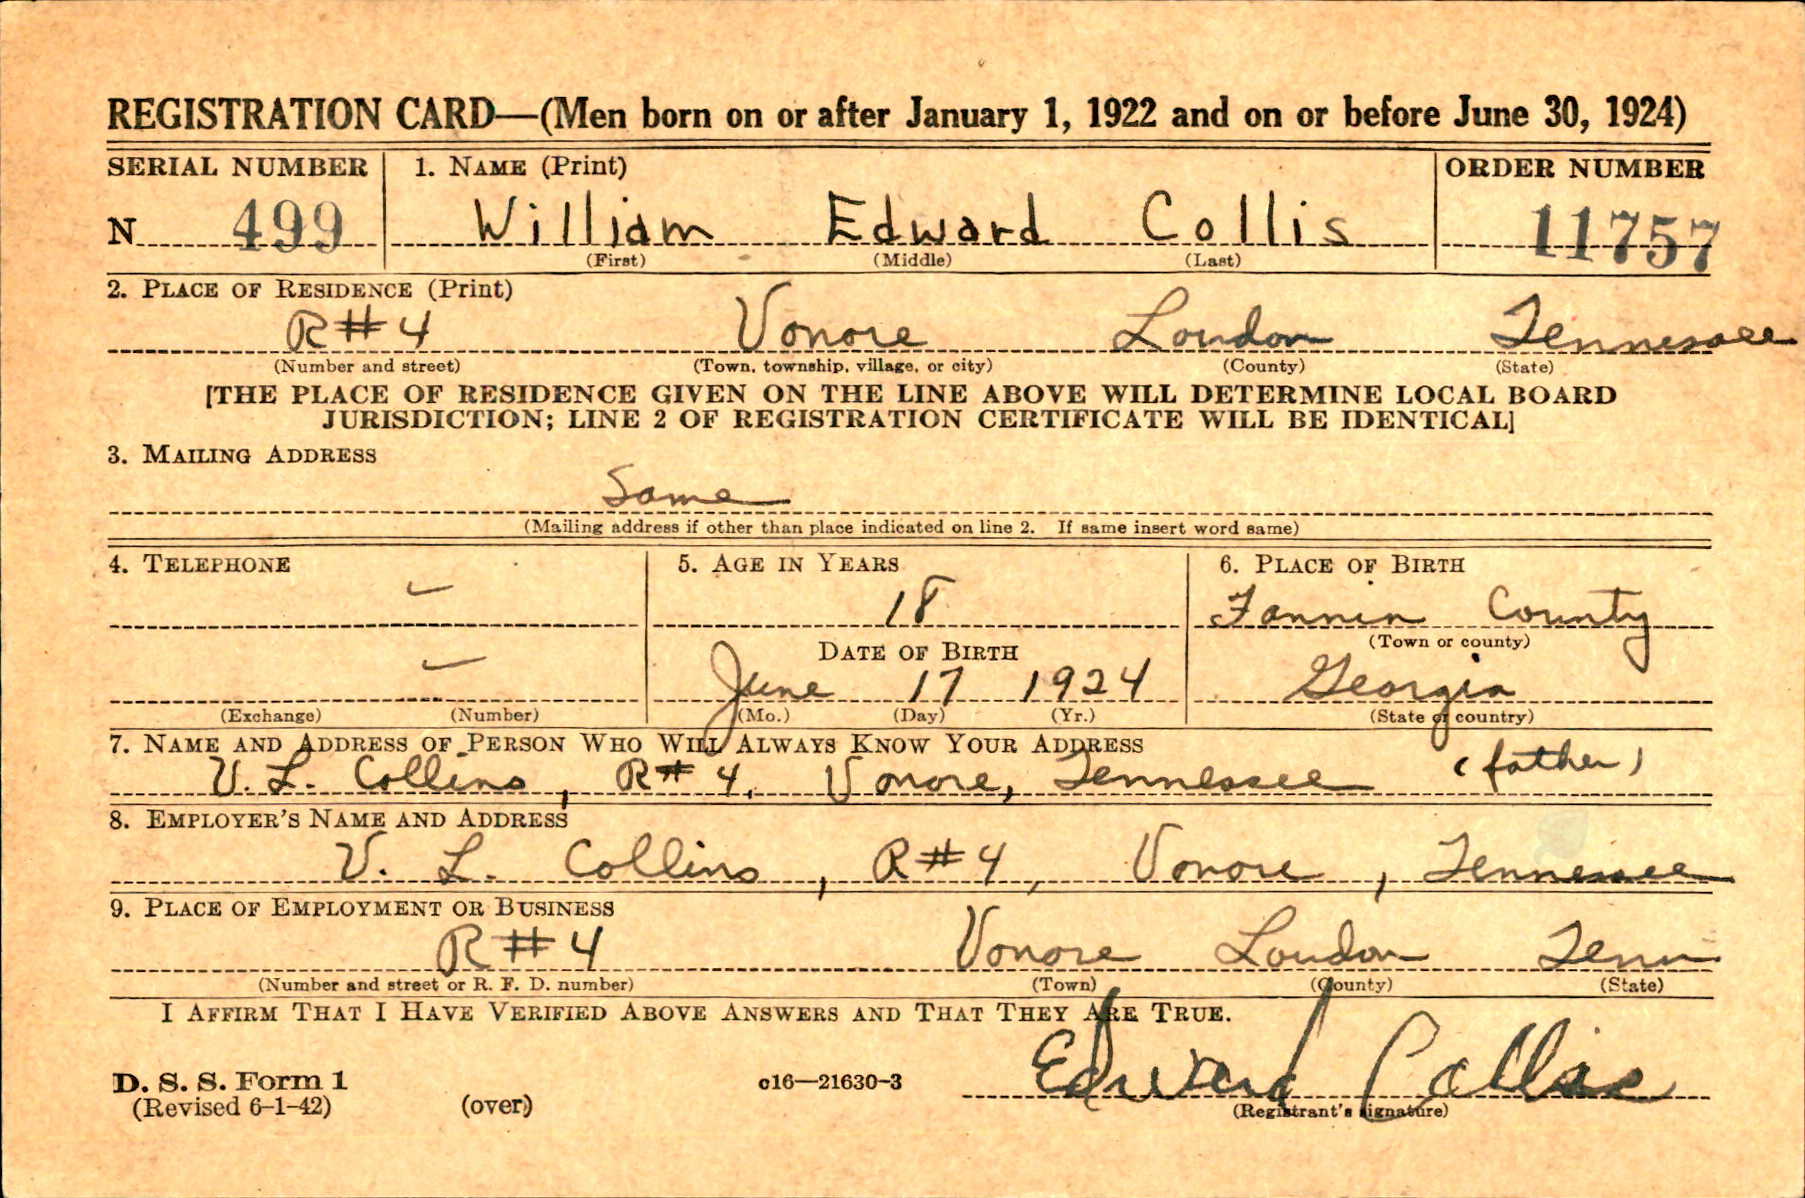 REGISTRATION CARD—(Men born on or after January 1, 1922 and on or before June 30, 1924)
SERIAL NUMBER 1. NAME (Print) ORDER NUMBER
N 499 William Edward Collis 11757
(First) (Middle) (Last)
2. PLACE OF RESIDENCE (Print)
R#4 Vonore Loudon Tennessee
(Number and street) (Town, township, village, or city) (County) (State)
[THE PLACE OF RESIDENCE GIVEN ON THE LINE ABOVE WILL DETERMINE LOCAL BOARD
JURISDICTION; LINE 2 OF REGISTRATION CERTIFICATE WILL BE IDENTICAL]
3. MAILING ADDRESS
Same
(Mailing address if other than place indicated on line 2. If same insert word same)
4. TELEPHONE 5. AGE IN YEARS 6. PLACE OF BIRTH
18 Fannin County
(Town or county)
DATE OF BIRTH
June 17 1924 Georgia
(Exchange) (Number) (Mo.) (Day) (Yr.) (State or country)
7. NAME AND ADDRESS OF PERSON WHO WILL ALWAYS KNOW YOUR ADDRESS
V. L. Collins, R#4, Vonore, Tennessee (father)
8. EMPLOYER'S NAME AND ADDRESS
V. L. Collins, R#4, Vonore, Tennessee
9. PLACE OF EMPLOYMENT OR BUSINESS
R#4 Vonore Loudon Tenn
(Number and street or R. F. D. number) (Town) (County) (State)
I AFFIRM THAT I HAVE VERIFIED ABOVE ANSWERS AND THAT THEY ARE TRUE.
Edward Collis
D. S. S. Form 1
(Revised 6-1-42) (over) c16—21630-3 (Registrant's signature)